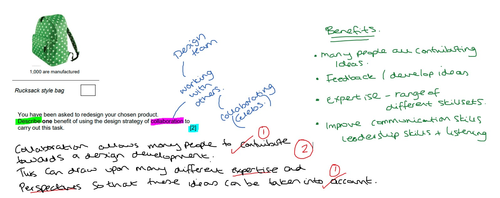 1,000 are manufactured
Rucksack style bag
You have been asked to redesign your chosen product.
Describe one benefit of using the design strategy of collaboration to
carry out this task.
[2]
Design
team
working
with
others.
collaborating
Collaboration allows many people to contribute
towards a design development.
This can draw upon many different expertise and
Perspectives so that these ideas can be taken into account.
1
2
1
Benefits.
• Many people are contributing
ideas.
• Feedback / develop ideas
• Expertise - range of
different skillsets.
• Improve communication skills
leadership skills + listening